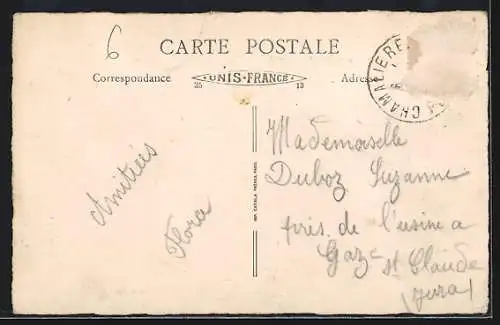 6
CARTE POSTALE
Correspondance
UNIS-FRANCE
25 13
Adresse
CHAMALIERE
Amitiés
Flora
IMP. CATALA FRÈRES, PARIS
Mademoiselle
Duboz Suzanne
près de l'usine a
Gaz
St Claude
(Jura)